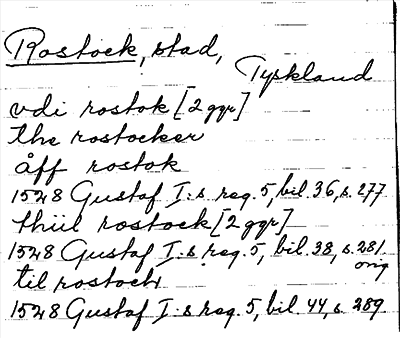 Rostock, stad,
Tyskland
vdi rostok [2 ggr]
the rostocker
åff rostok
1528 Gustaf I:s reg. 5, bil. 36, s. 277
thiil rostock [2 ggr]
1528 Gustaf I:s reg. 5, bil. 38, s. 281.
orig
til rostoch
1528 Gustaf I:s reg. 5, bil. 44, s. 289